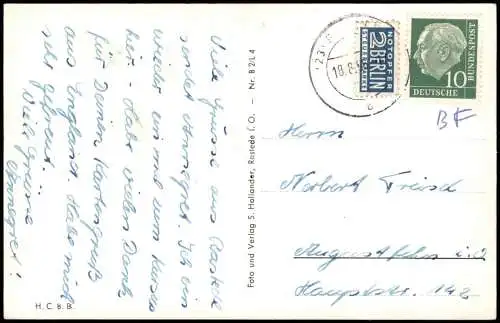 Viele Grüsse aus Rastede
sendet Annegret. Ich bin
wieder ein mal zum Kursus
hier. Habe vielen Dank
für Deinen Kartengruß
aus England. Habe mich
sehr gefreut.
Viele Grüsse
Annegret!
H. C. B. B.
Foto und Verlag S. Hollander, Rastede i. O. – Nr. B 2/L 4
(23)
18.8.
NOTOPFER
2 BERLIN
STEUERMARKE
10
DEUTSCHE
BUNDESPOST
BF
Herrn
Norbert Freisch
Augustfehn i.O
Hauptstr. 142